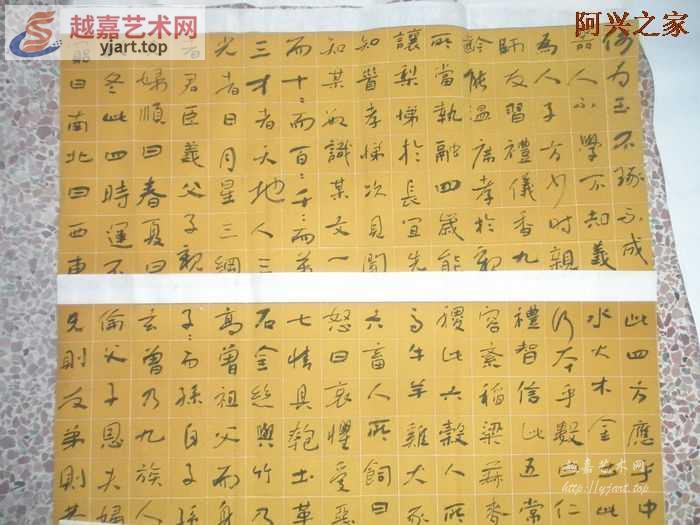 越嘉艺术网
yjart.com
阿兴之家
何为玉不琢不成
器人不學不知義
為人子方少时親
師友習禮儀香九
齡能温席孝於親
所當執融四歲能
讓梨悌於長宜先
知首孝悌次見聞
知某數識某文一
而十〻而百〻千〻而萬
三才者天地人三
光者日月星三綱
者君臣義父子親
婦順曰春夏曰
冬此四時運不
曰南北曰西東
此四方應乎中
水火木金土此
行本乎數曰仁
禮智信此五常
容紊稻粱菽麥
稷此六穀人所
馬牛羊雞犬豕
六畜人所飼曰
怒曰哀懼愛惡
七情具匏土革
石金絲與竹乃
高曾祖父而身
子〻而孫自子孫
玄曾乃九族人
倫父子恩夫婦
兄則友弟則恭
越嘉艺术网
http://yjart.com